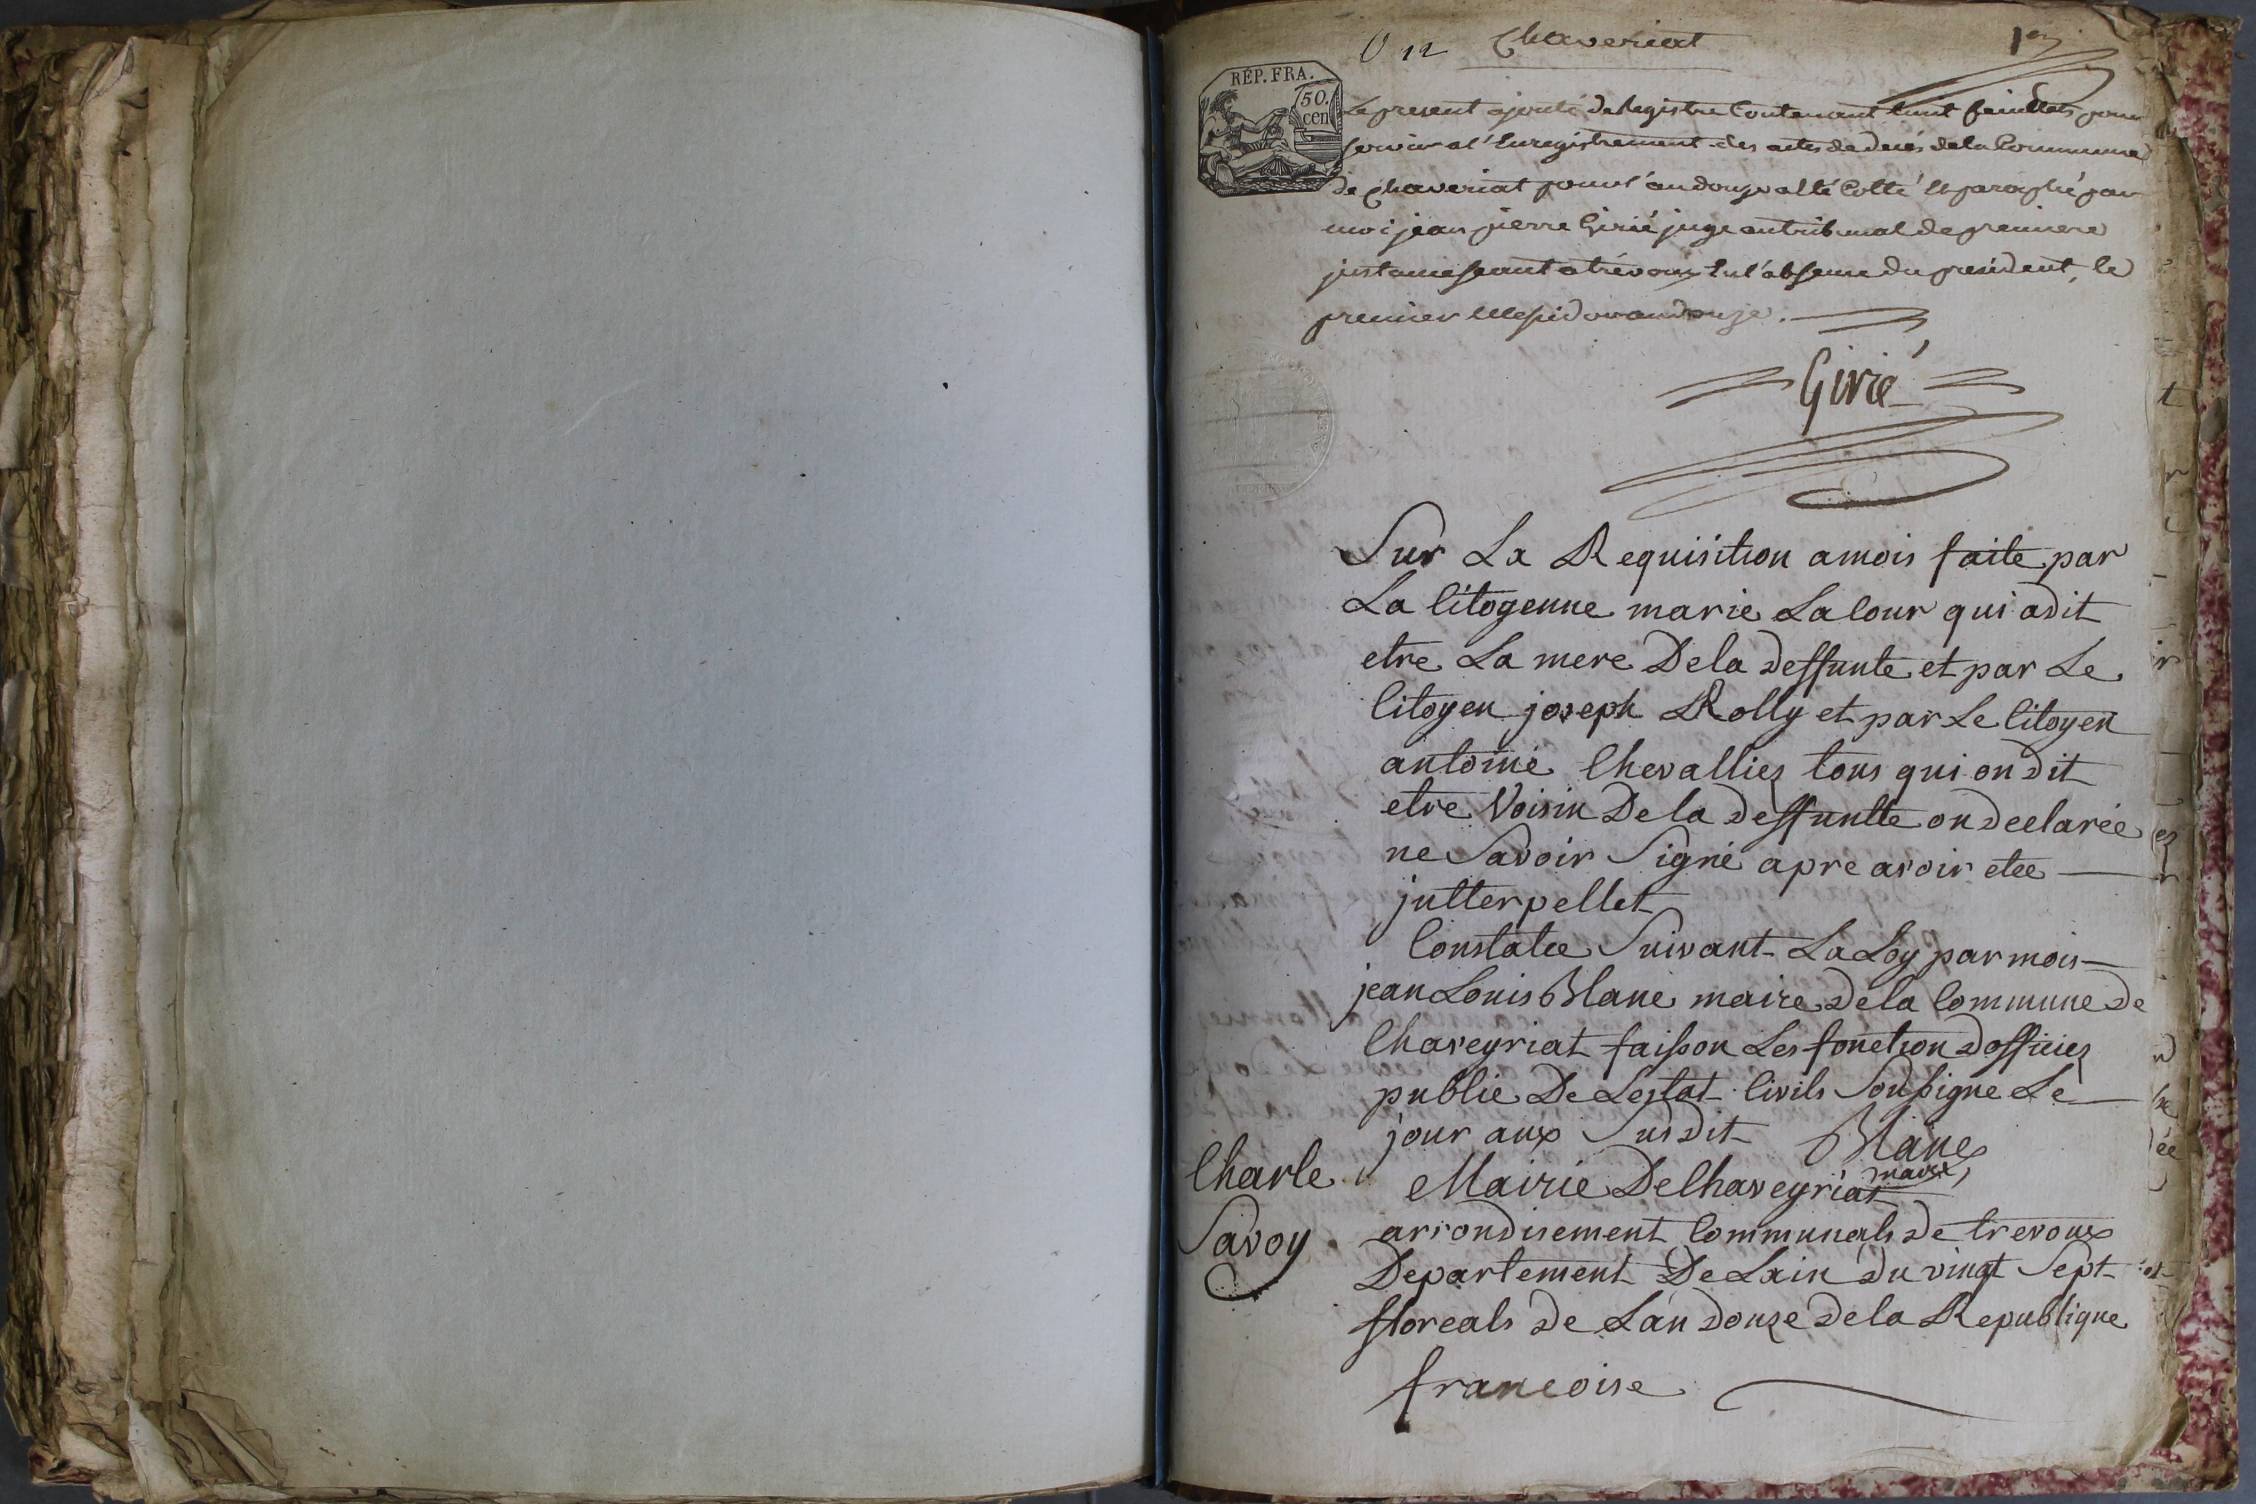 Chaveriat
1er
RÉP. FRA.
50.
cen
Le present ajouté de Registre Contenant huit feuillets pour
servir a l'Enregistrement des actes de decés de la Commune
de Chaveriat pour l'an douze a été Cotté et paraphé par
moi jean pierre Girié juge au tribunal de premiere
jnstance seant a trévoux En l'absence du president, le
premier Messidor an douze.
Girié
Sur La Requisition a mois faite par
La Citoyenne marie La Cour qui a dit
etre La mere De la deffunte et par Le
Citoyen joseph Rolly et par Le Citoyen
antoine Chevallier tous qui on dit
etre Voisin De la deffuntte on declarée
ne Savoir Signé apre avoir etee
jutterpellet
Constatee Suivant La Loy par mois
jean Louis Blanc maire de la Commune de
Chaveyriat faisson Les fonction d officier
public De Lestat Civils Soussigne Le
jour aux Sus dit Blanc
maire
Charle
Savoy
Mairie De Chaveyriat
arrondisement Communals de trevoux
Departement De Lain du vingt Sept
floreals de L'an douze de la Republique
francoise